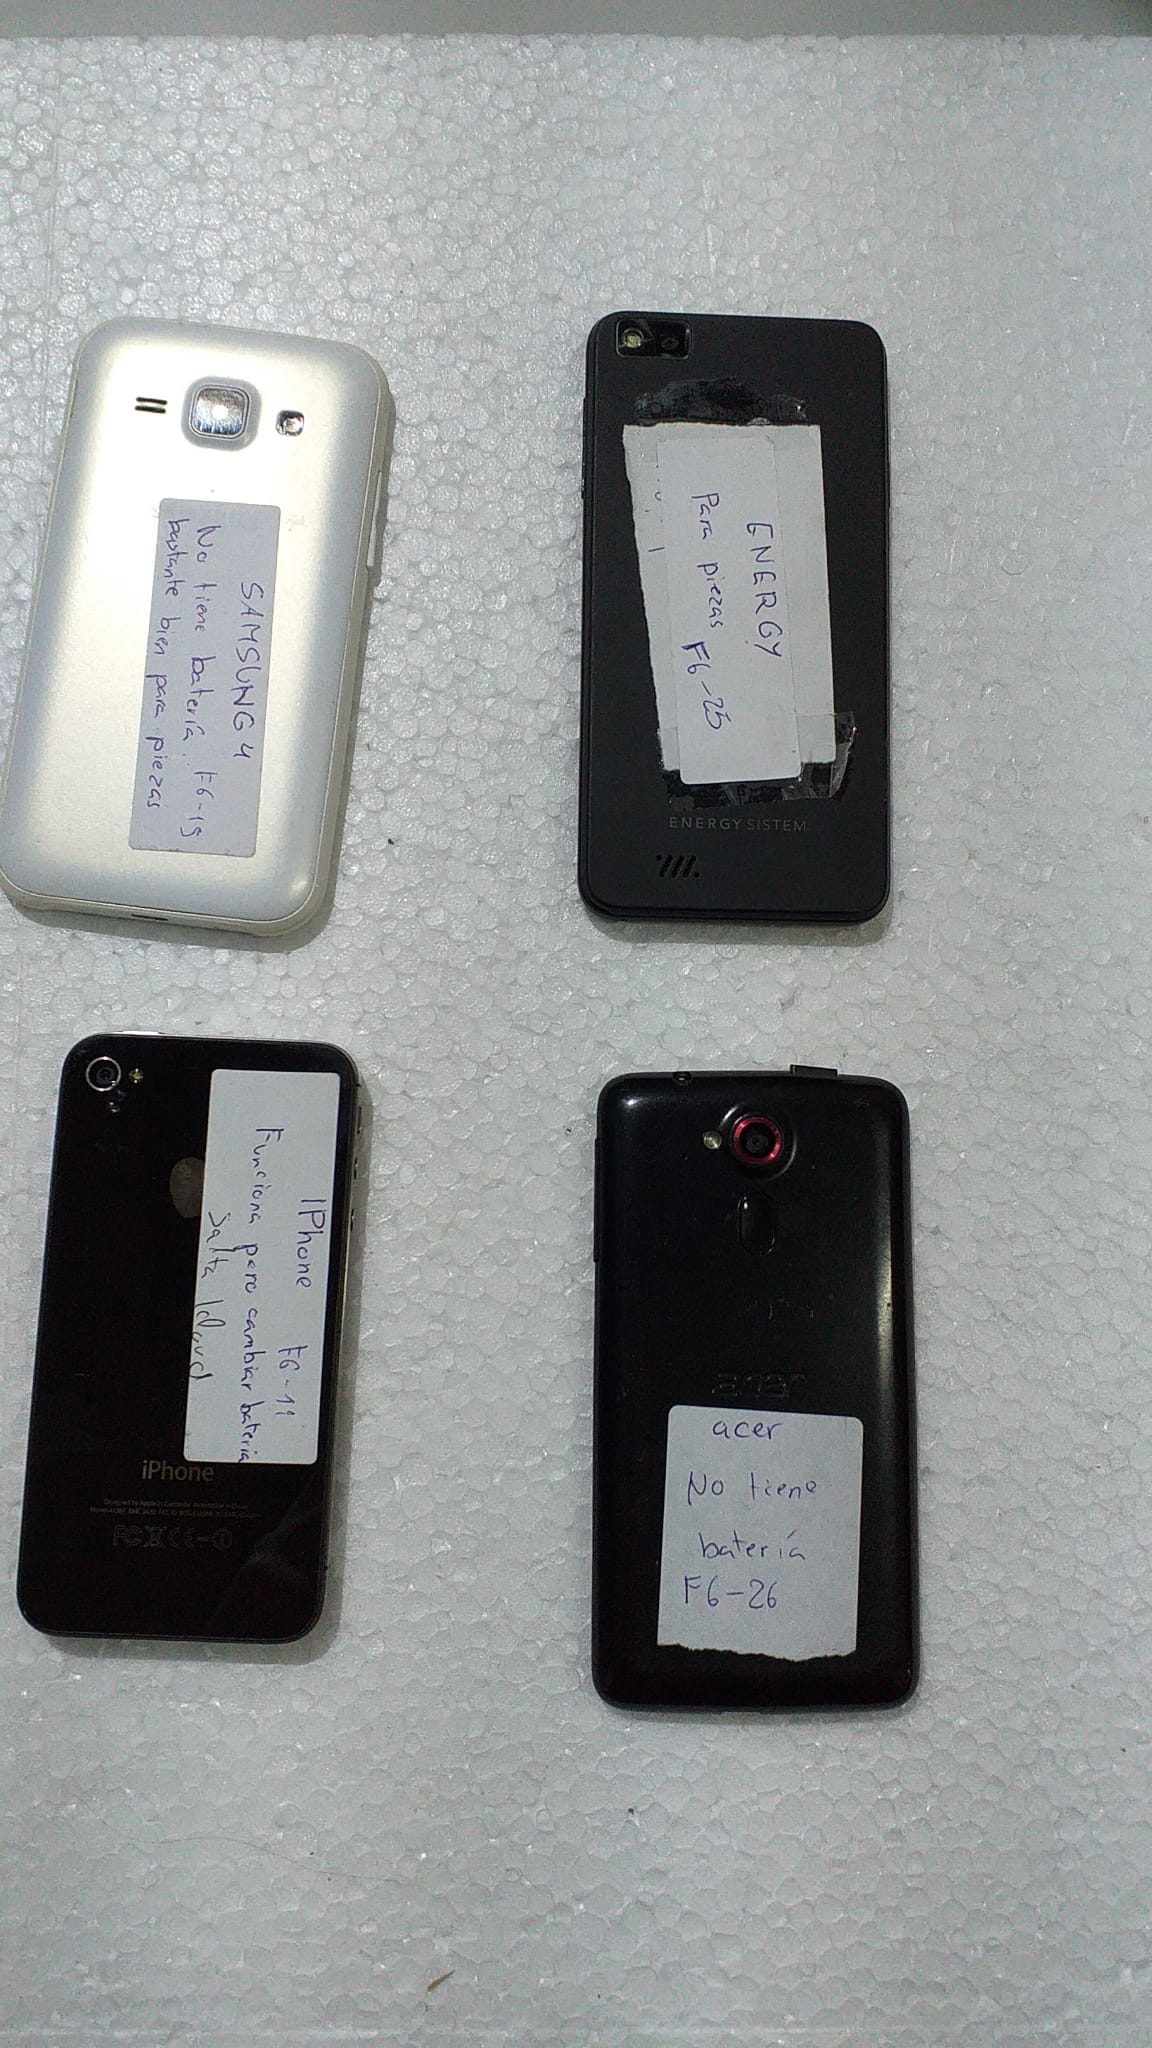 SAMSUNG 4
No tiene batería.. F6-19
bastante bien para piezas
ENERGY
Para piezas F6-25
ENERGY SISTEM
IPhone F6-11
Funciona pero cambiar bateria
salta Icloud
iPhone
Designed by Apple in California Assembled in China
acer
acer
No tiene
batería
F6-26